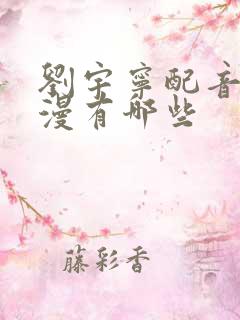 劉宇寧配音
漫有哪些
藤彩香